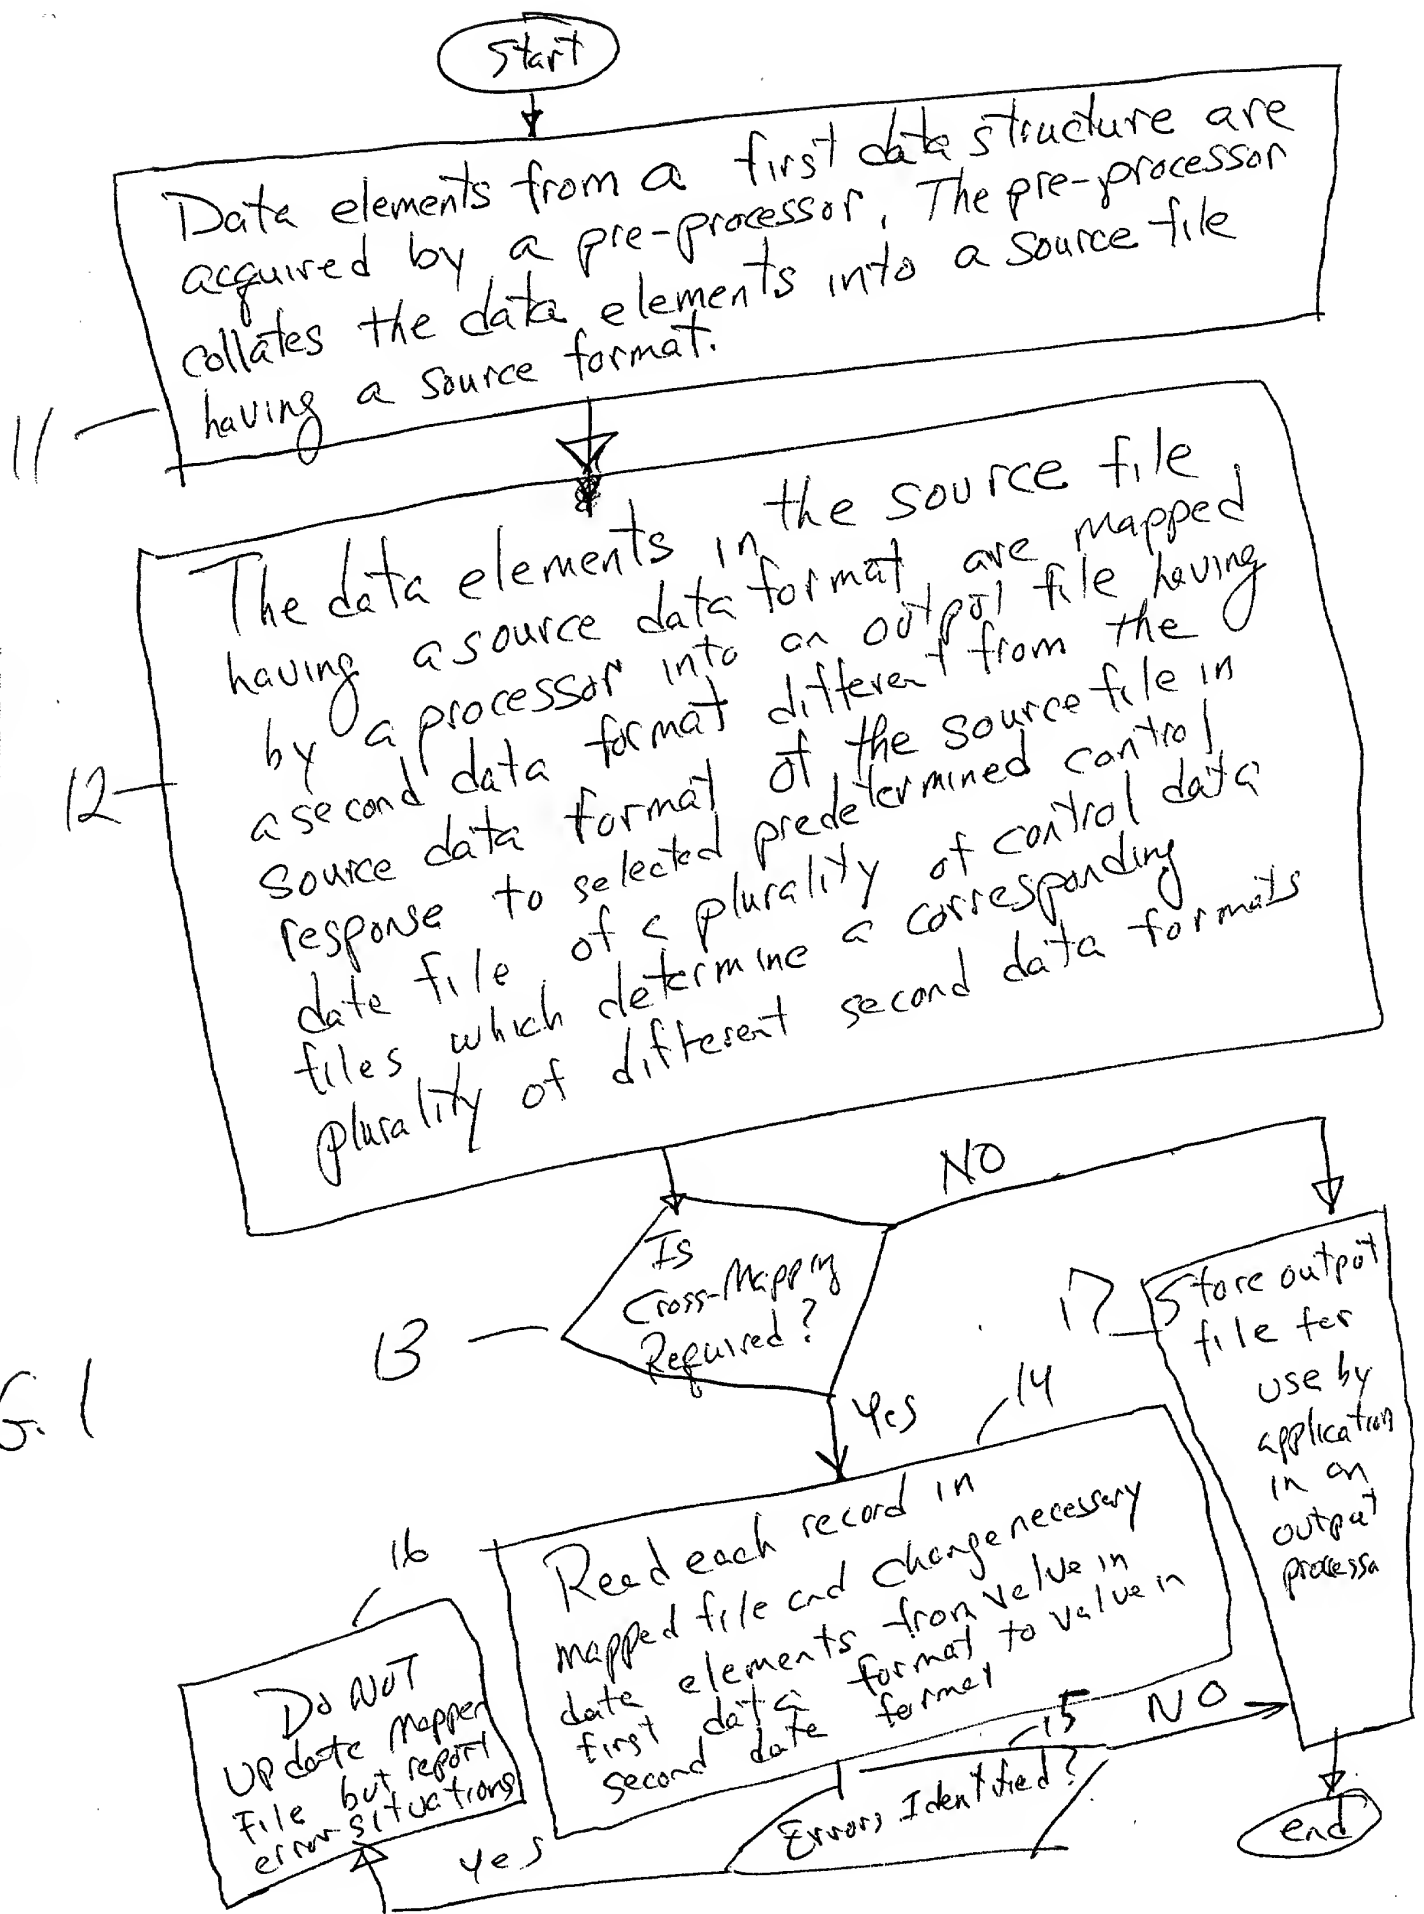 Start
Data elements from a first data structure are
acquired by a pre-processor. The pre-processor
collates the data elements into a source file
having a source format.
11
The data elements in the source file,
having a source data format, are mapped
by a processor into an output file having
a second data format different from the
source data format of the source file in
response to selected predetermined control
data file of a plurality of control data
files which determine a corresponding
plurality of different second data formats
12
NO
Is
Cross-Mapping
Required?
13
Yes
17
Store output
file for
use by
application
in an
output
processor
G. 1
14
Read each record in
mapped file and change necessary
data elements from value in
first data format to value in
second data format
16
Do NOT
update mapped
File but report
error situations
15
NO
Errors Identified?
yes
end